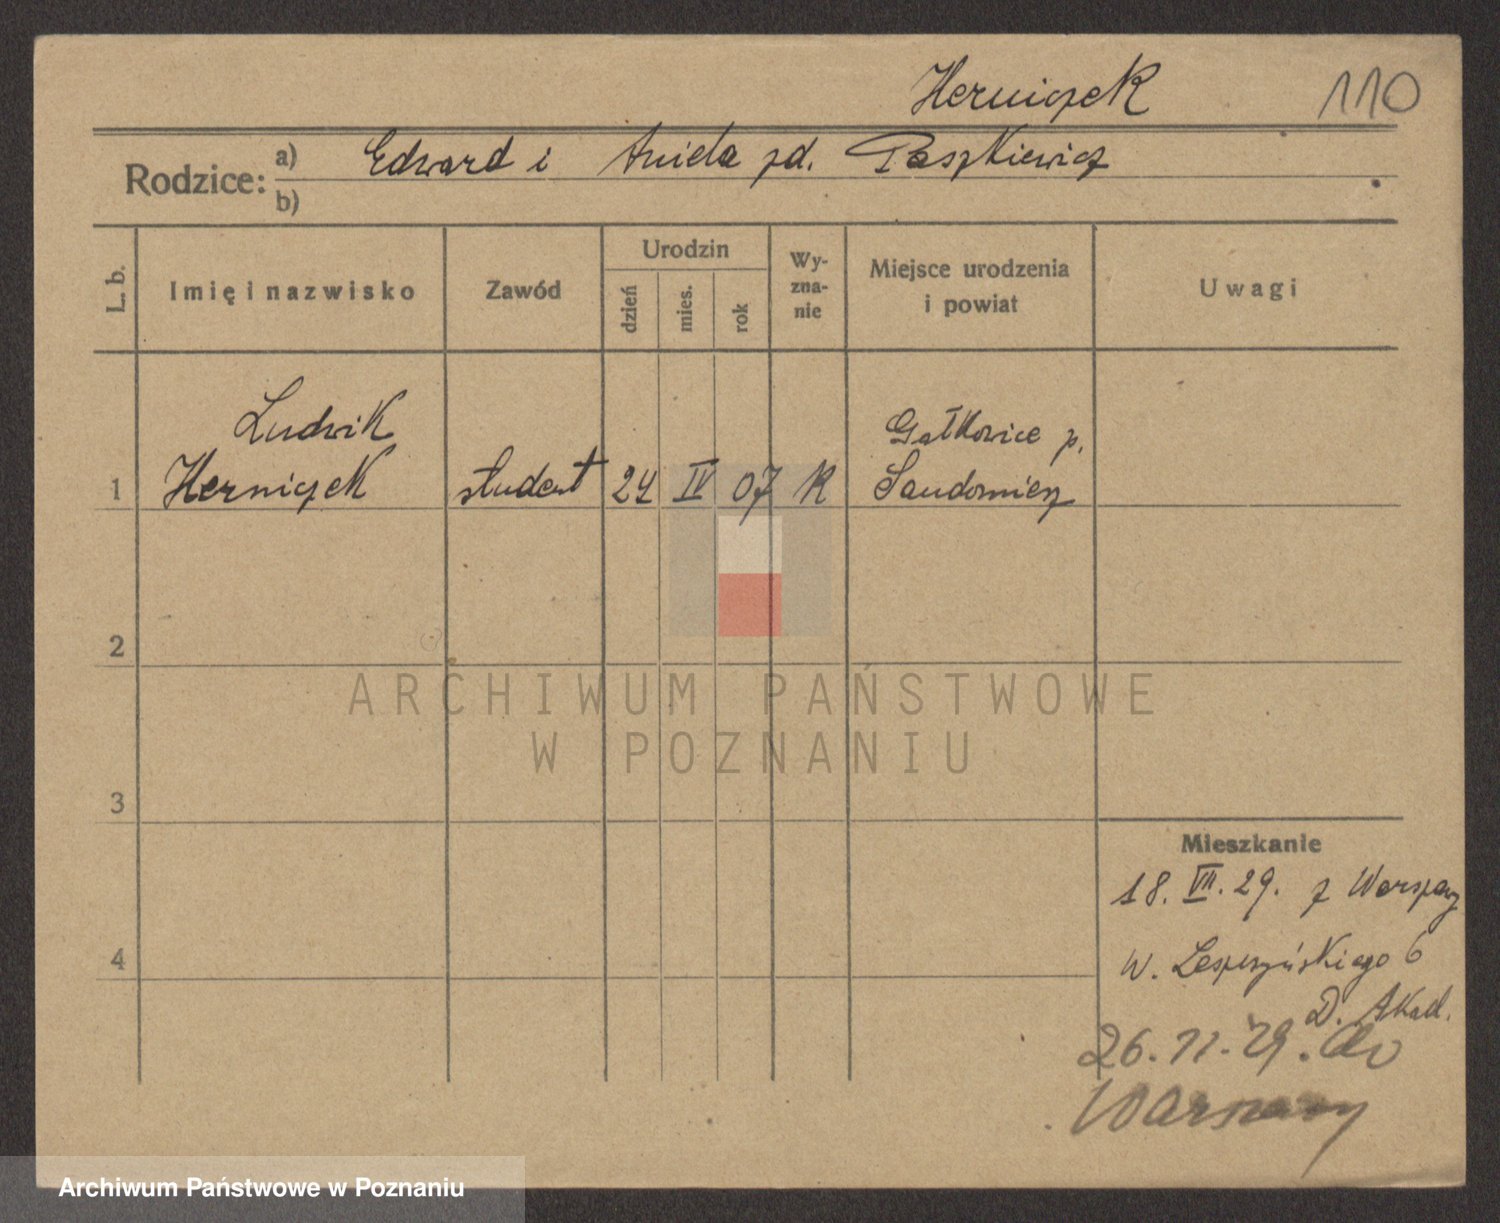 Herniczek 110
Rodzice: a) Edward i Aniela zd. Paszkiewicz
b)
L. b. Imię i nazwisko Zawód Urodzin dzień mies. rok Wy-zna-nie Miejsce urodzenia i powiat Uwagi
Ludwik Gałkowice p.
1 Herniczek student 24 IV 07 K Sandomierz
2
ARCHIWUM PAŃSTWOWE
W POZNANIU
3
Mieszkanie
18. VII. 29. z Warszawy
4 W. Leszczyńskiego 6
D. Akad.
26. 11. 29. do
Warszawy
Archiwum Państwowe w Poznaniu